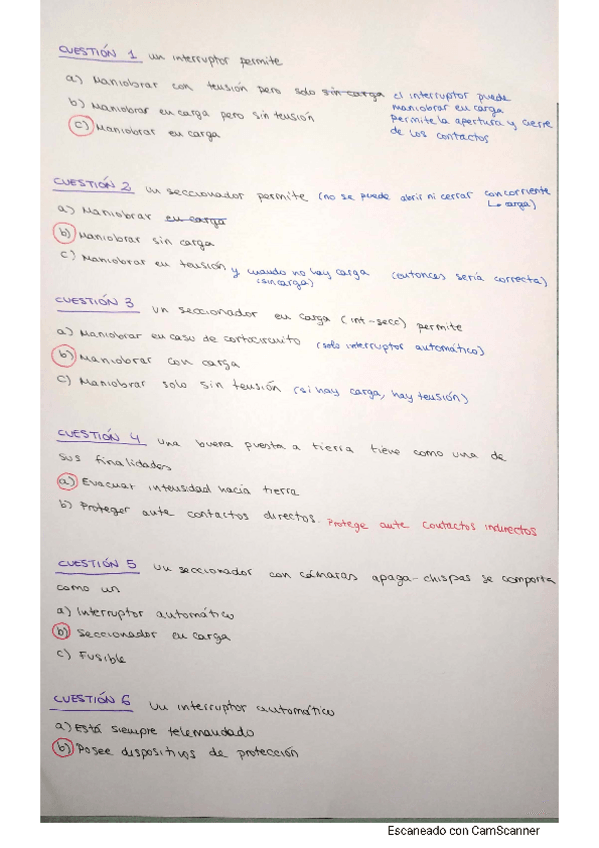 CUESTIÓN 1 un interruptor permite
a) Maniobrar con tensión pero solo sin carga el interruptor puede
b) Maniobrar en carga pero sin tensión maniobrar en carga
permite la apertura y cierre
c) Maniobrar en carga de los contactos
CUESTIÓN 2 un seccionador permite (no se puede abrir ni cerrar con corriente
↳ carga)
a) Maniobrar en carga
b) Maniobrar sin carga
c) Maniobrar en tensión y cuando no hay carga (entonces sería correcta)
(sin carga)
CUESTIÓN 3 un seccionador en carga (int-secc) permite
a) Maniobrar en caso de cortocircuito (solo interruptor automático)
b) Maniobrar con carga
c) Maniobrar solo sin tensión (si hay carga, hay tensión)
CUESTIÓN 4 una buena puesta a tierra tiene como una de
sus finalidades
a) Evacuar intensidad hacia tierra
b) Proteger ante contactos directos. Protege ante contactos indirectos
CUESTIÓN 5 un seccionador con cámaras apaga-chispas se comporta
como un
a) Interruptor automático
b) Seccionador en carga
c) Fusible
CUESTIÓN 6 un interruptor automático
a) Está siempre telemandado
b) Posee dispositivos de protección
Escaneado con CamScanner